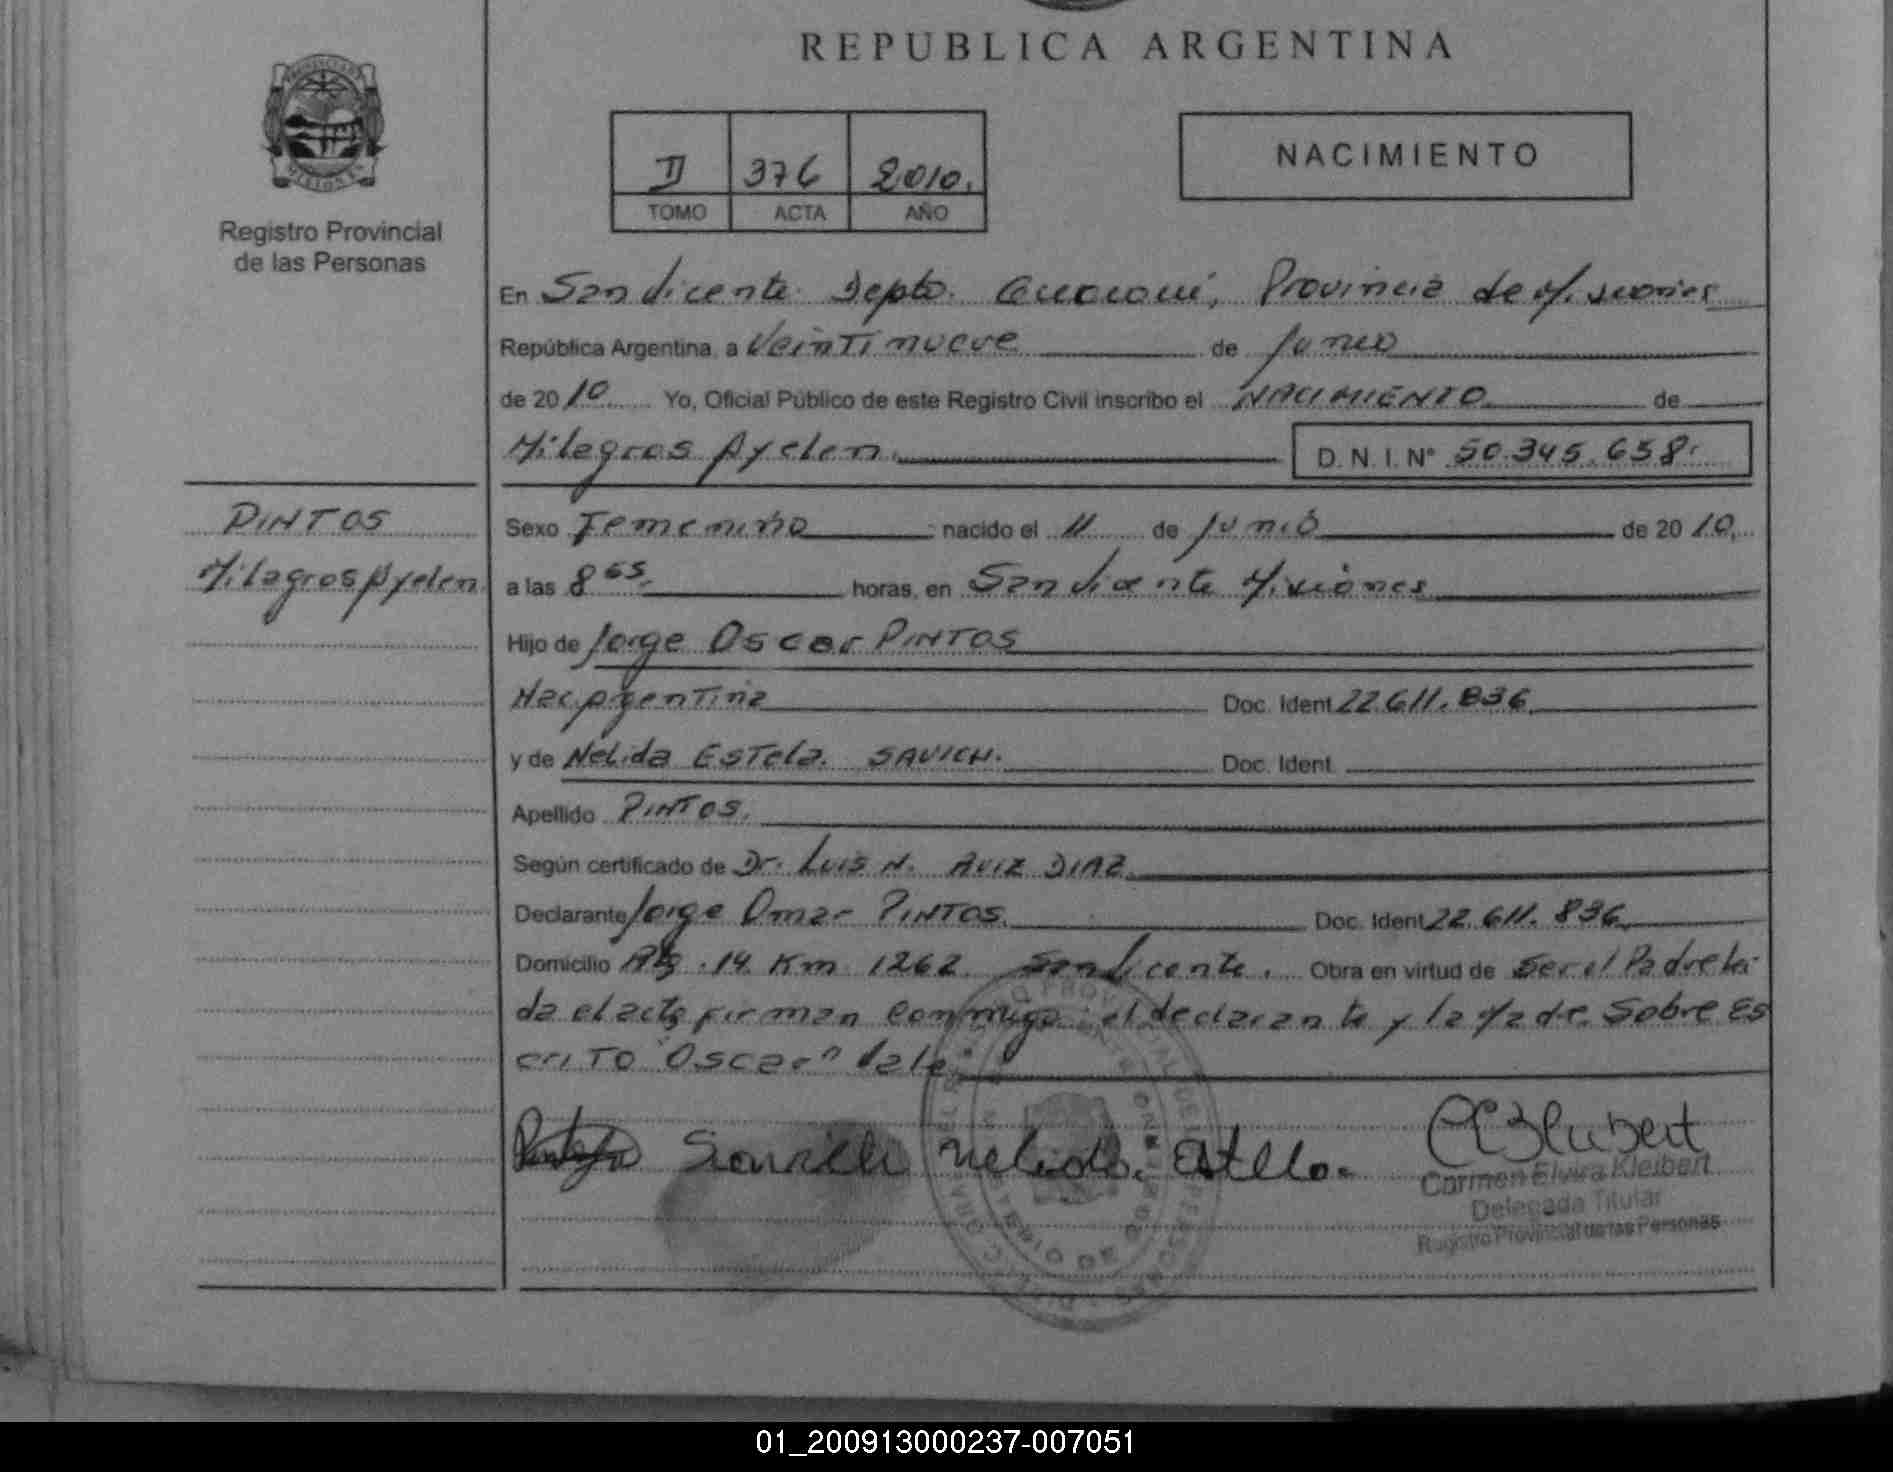 REPUBLICA ARGENTINA
PROVINCIA DE
MISIONES
Registro Provincial
de las Personas
II 376 2010.
TOMO ACTA AÑO
NACIMIENTO
En San Vicente Depto. Guaraní, Provincia de Misiones
República Argentina, a Veintinueve de Junio
de 2010 Yo, Oficial Público de este Registro Civil inscribo el NACIMIENTO de
Milagros Ayelen. D.N.I. Nº 50.345.658.
PINTOS
Milagros Ayelen
Sexo Femenino nacido el 11 de Junio de 2010,
a las 8 horas, en San Vicente Misiones
Hijo de Jorge Oscar PINTOS
Nac. Argentina Doc. Ident 22.611.836
y de Nelida Estela. SAVICH. Doc. Ident.
Apellido PINTOS.
Según certificado de Dr. Luis N. DIAZ
Declarante Jorge Omar PINTOS. Doc. Ident 22.611.836
Domicilio 14 Km 1262 San Vicente. Obra en virtud de Ser el Padre lei
da el acta firman conmigo el declarante y la Madre. Sobre Es
crito "Oscar" Vale
Savich Nelida. Estella.
Carmen Elvira Kleibert
Delegada Titular
Registro Provincial de las Personas
01_200913000237-007051